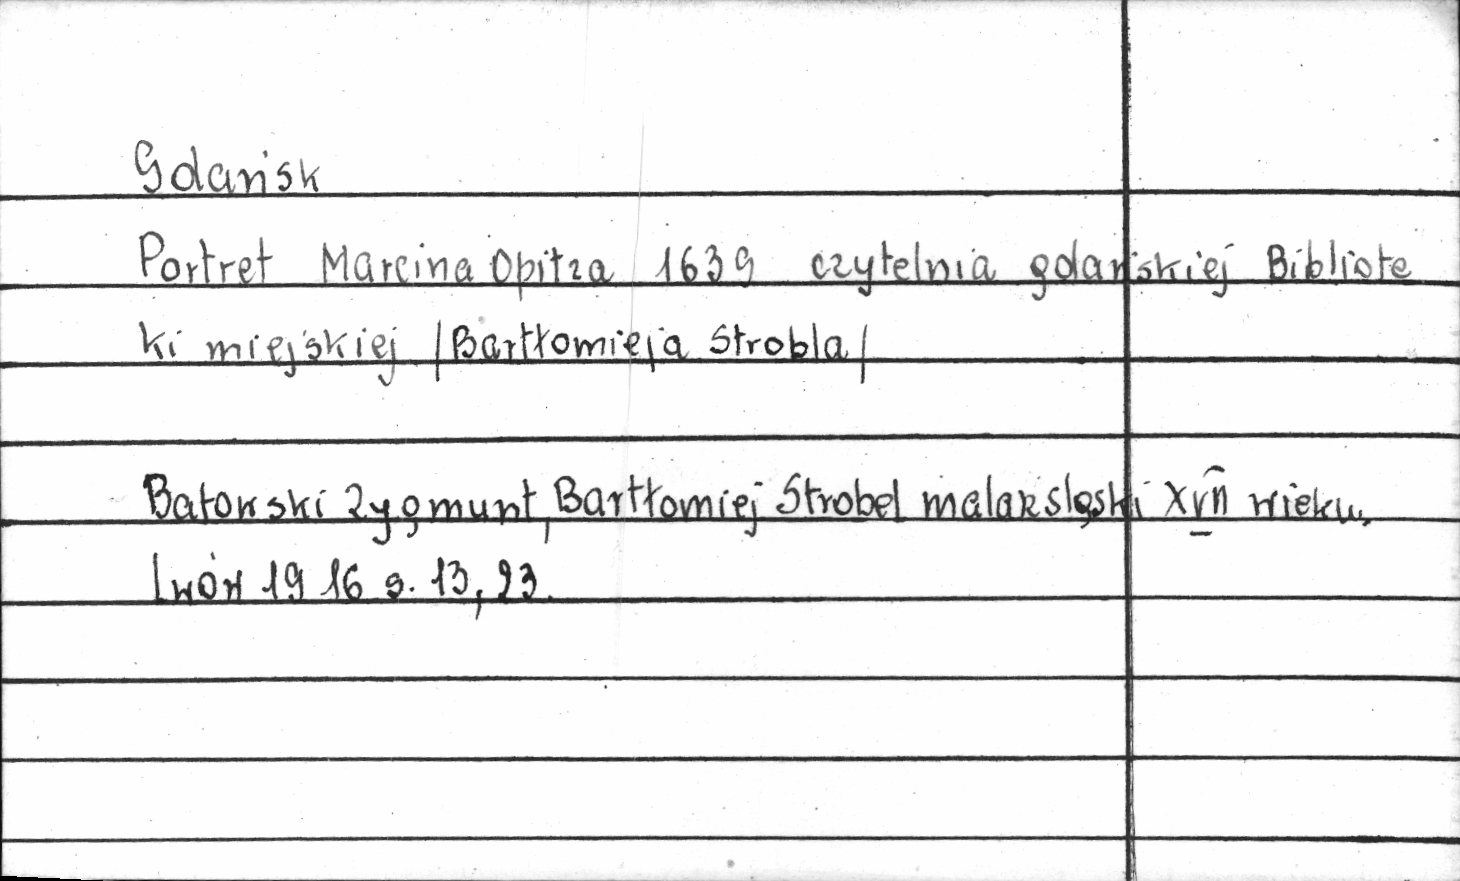 Gdańsk
Portret Marcina Opitza 1639 czytelnia gdańskiej Bibliote
ki miejskiej /Bartłomieja Strobla/
Batowski Zygmunt, Bartłomiej Strobel malarz śląski XVII wieku,
Lwów 1916 s. 13, 23.